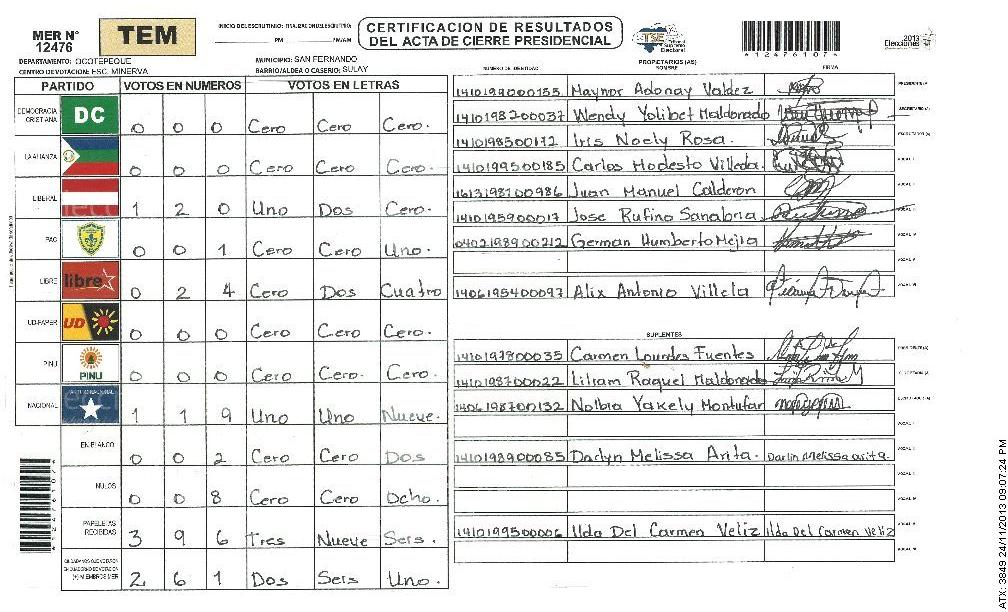 MER N°
12476
TEM
INICIO DEL ESCRUTINIO: FINALIZACION DEL ESCRUTINIO:
PM PM/AM
CERTIFICACION DE RESULTADOS
DEL ACTA DE CIERRE PRESIDENCIAL
TSE
Tribunal
Supremo
Electoral
4124761074
2013
Elecciones
DEPARTAMENTO: OCOTEPEQUE
MUNICIPIO: SAN FERNANDO
CENTRO DE VOTACION: ESC. MINERVA
BARRIO/ALDEA O CASERIO: SULAY
PARTIDO VOTOS EN NUMEROS VOTOS EN LETRAS
DEMOCRACIA CRISTIANA DC 0 0 0 Cero Cero Cero.
LA ALIANZA 0 0 0 Cero Cero Cero.
LIBERAL 1 2 0 Uno Dos Cero.
PAC 0 0 1 Cero Cero Uno.
LIBRE libre 0 2 4 Cero Dos Cuatro
UD-FAPER UD 0 0 0 Cero Cero Cero.
PINU PINU 0 0 0 Cero Cero Cero.
NACIONAL 1 1 9 Uno Uno Nueve.
EN BLANCO 0 0 2 Cero Cero Dos
NULOS 0 0 8 Cero Cero Ocho.
PAPELETAS RECIBIDAS 3 9 6 Tres Nueve Seis.
CIUDADANOS QUE VOTARON EN CUADERNO DE VOTACION (+) MIEMBROS MER 2 6 1 Dos Seis Uno.
PROPIETARIOS (AS)
NUMERO DE IDENTIDAD NOMBRE FIRMA
1410199000155 Maynor Adonay Valdez PRESIDENTE(A)
1410198200037 Wendy Yolibet Maldonado SECRETARIO(A)
1410198500172 Iris Noely Rosa. ESCRUTADOR(A)
1410199500185 Carlos Modesto Villeda. VOCAL I
1613198700986 Juan Manuel Calderon VOCAL II
1410195900017 Jose Rufino Sanabria VOCAL III
0402198900212 German Humberto Mejia VOCAL IV
VOCAL V
1406195400097 Alix Antonio Villela VOCAL VI
SUPLENTES
1410197800035 Carmen Lourdes Fuentes PRESIDENTE(A)
1410198700022 Liliam Raquel Maldonado SECRETARIO(A)
1406198700132 Nolbia Yakely Montufar ESCRUTADOR(A)
VOCAL I
1410198900085 Darlyn Melissa Arita. Darlin Melissa arita.
1410199500006 Ilda Del Carmen Veliz Ilda Del Carmen Veliz
4124761074
ATX: 3849 24/11/2013 09:07:24 PM